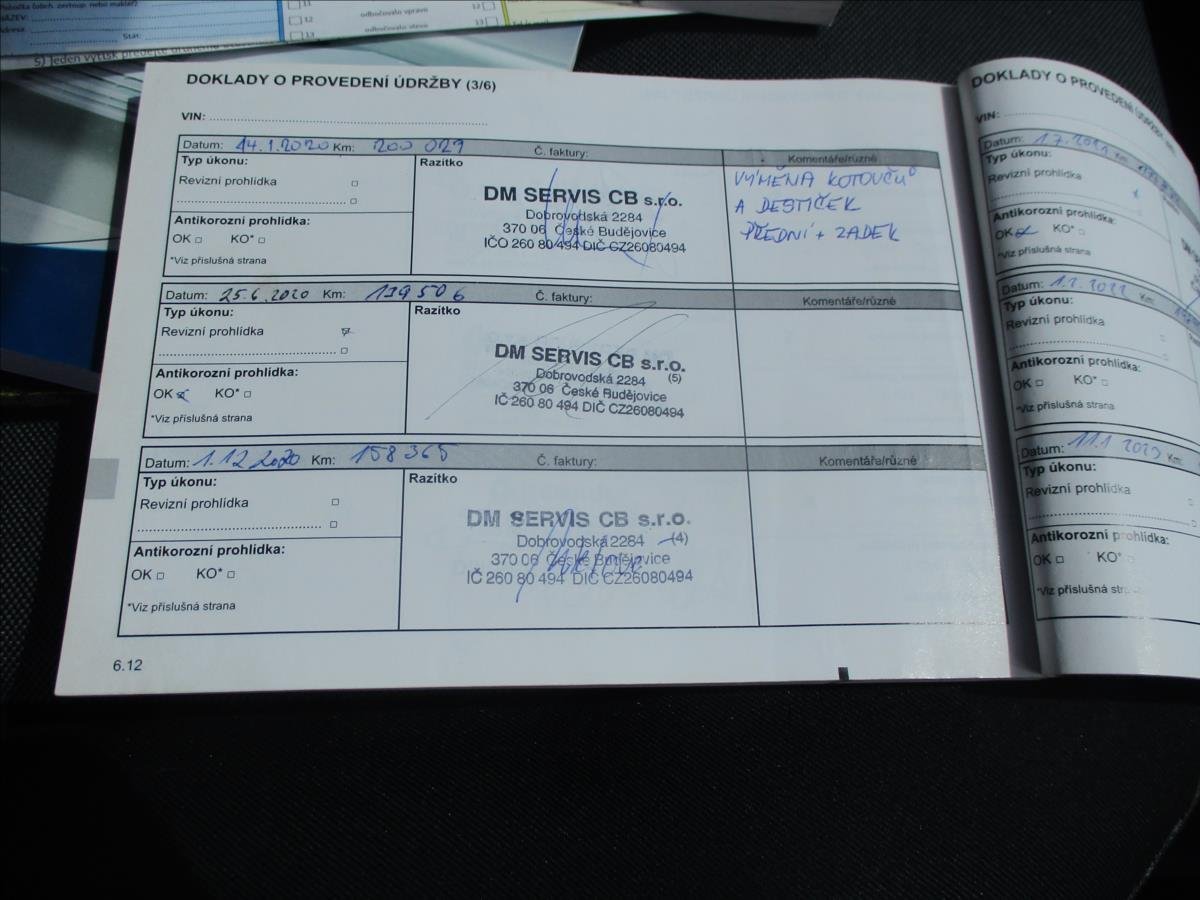 NÁZEV:
Adresa:
Stát:
11
12
13
odbočovalo vpravo
odbočovalo vlevo
12
13
5) Jeden výtisk předejte druhému
DOKLADY O PROVEDENÍ ÚDRŽBY (3/6)
VIN:
Datum: 14.1.2020 Km: 200 029 Č. faktury: Komentáře/různé
Typ úkonu:
Revizní prohlídka
Antikorozní prohlídka:
OK KO*
*Viz příslušná strana
Razítko
DM SERVIS CB s.r.o.
Dobrovodská 2284
370 06 České Budějovice
IČO 260 80 494 DIČ CZ26080494
VÝMĚNA KOTOUČŮ
A DESTIČEK
PŘEDNÍ + ZADEK
Datum: 25.6.2020 Km: Č. faktury: Komentáře/různé
Typ úkonu:
Revizní prohlídka
Antikorozní prohlídka:
OK KO*
*Viz příslušná strana
Razítko
DM SERVIS CB s.r.o.
Dobrovodská 2284 (5)
370 06 České Budějovice
IČ 260 80 494 DIČ CZ26080494
Datum: 1.12.2020 Km: 158365 Č. faktury: Komentáře/různé
Typ úkonu:
Revizní prohlídka
Antikorozní prohlídka:
OK KO*
*Viz příslušná strana
Razítko
DM SERVIS CB s.r.o.
Dobrovodská 2284 (4)
370 06 České Budějovice
IČ 260 80 494 DIČ CZ26080494
6.12
DOKLADY O PROVEDENÍ ÚDRŽBY
VIN:
Datum: Km:
Typ úkonu:
Revizní prohlídka
Antikorozní prohlídka:
OK KO*
*Viz příslušná strana
Datum: Km:
Typ úkonu:
Revizní prohlídka
Antikorozní prohlídka:
OK KO*
*Viz příslušná strana
Datum: Km:
Typ úkonu:
Revizní prohlídka
Antikorozní prohlídka:
OK KO*
*Viz příslušná